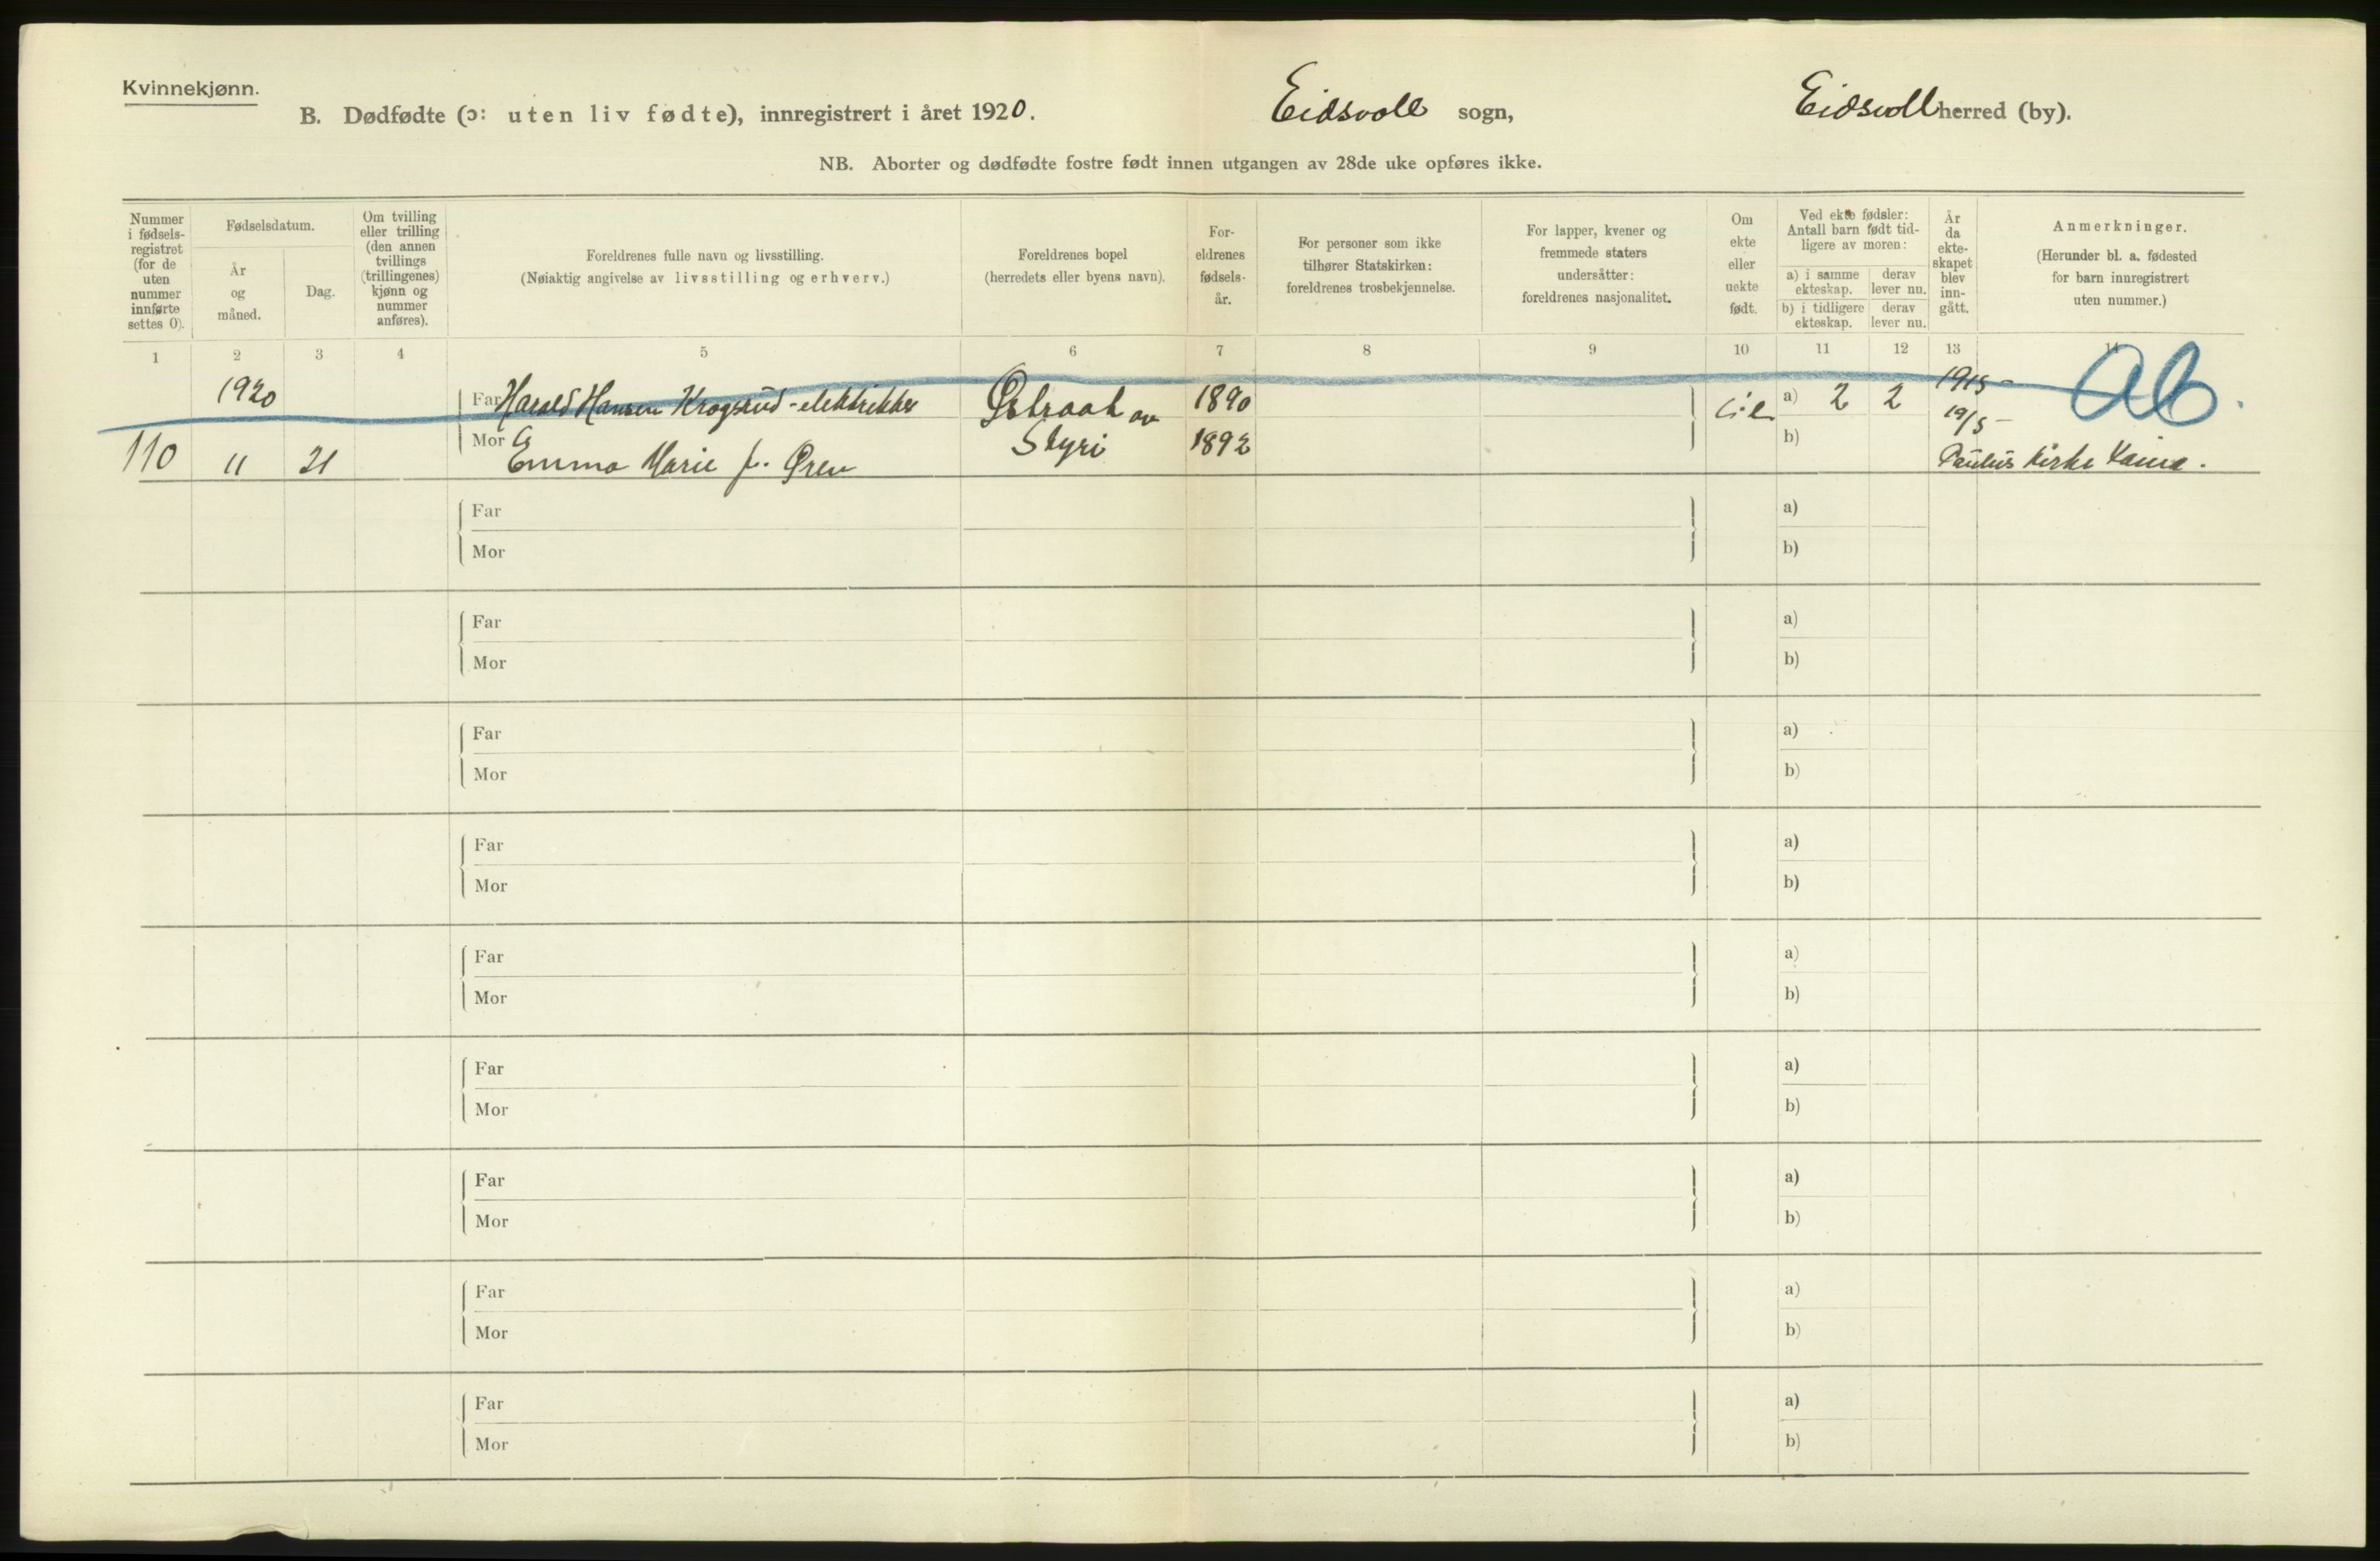 Kvinnekjønn.
B. Dødfødte (ɔ: uten liv fødte), innregistrert i året 1920. Eidsvoll sogn, Eidsvoll herred (by).
NB. Aborter og dødfødte fostre født innen utgangen av 28de uke opføres ikke.
Nummer
i fødsels-
registret
(for de
uten
nummer
innførte
settes 0).
Fødselsdatum.
År
og
måned.
Dag.
Om tvilling
eller trilling
(den annen
tvillings
(trillingenes)
kjønn og
nummer
anføres).
Foreldrenes fulle navn og livsstilling.
(Nøiaktig angivelse av livsstilling og erhverv.)
Foreldrenes bopel
(herredets eller byens navn).
For-
eldrenes
fødsels-
år.
For personer som ikke
tilhører Statskirken:
foreldrenes trosbekjennelse.
For lapper, kvener og
fremmede staters
undersåtter:
foreldrenes nasjonalitet.
Om
ekte
eller
uekte
født.
Ved ekte fødsler:
Antall barn født tid-
ligere av moren:
a) i samme
ekteskap.
derav
lever nu.
b) i tidligere
ekteskap.
derav
lever nu.
År
da
ekte-
skapet
blev
inn-
gått.
Anmerkninger.
(Herunder bl. a. fødested
for barn innregistrert
uten nummer.)
1 2 3 4 5 6 7 8 9 10 11 12 13 14
1920 Far Harald Hansen Krogsrud - elektriker Østraat av 1890 a) 2 2 1915 - Ab.
19/5 -
110 11 21 Mor Emma Marie f. Øren Styri 1892 b) Paulus kirke
Far a)
Mor b)
Far a)
Mor b)
Far a)
Mor b)
Far a)
Mor b)
Far a)
Mor b)
Far a)
Mor b)
Far a)
Mor b)
Far a)
Mor b)
Far a)
Mor b)